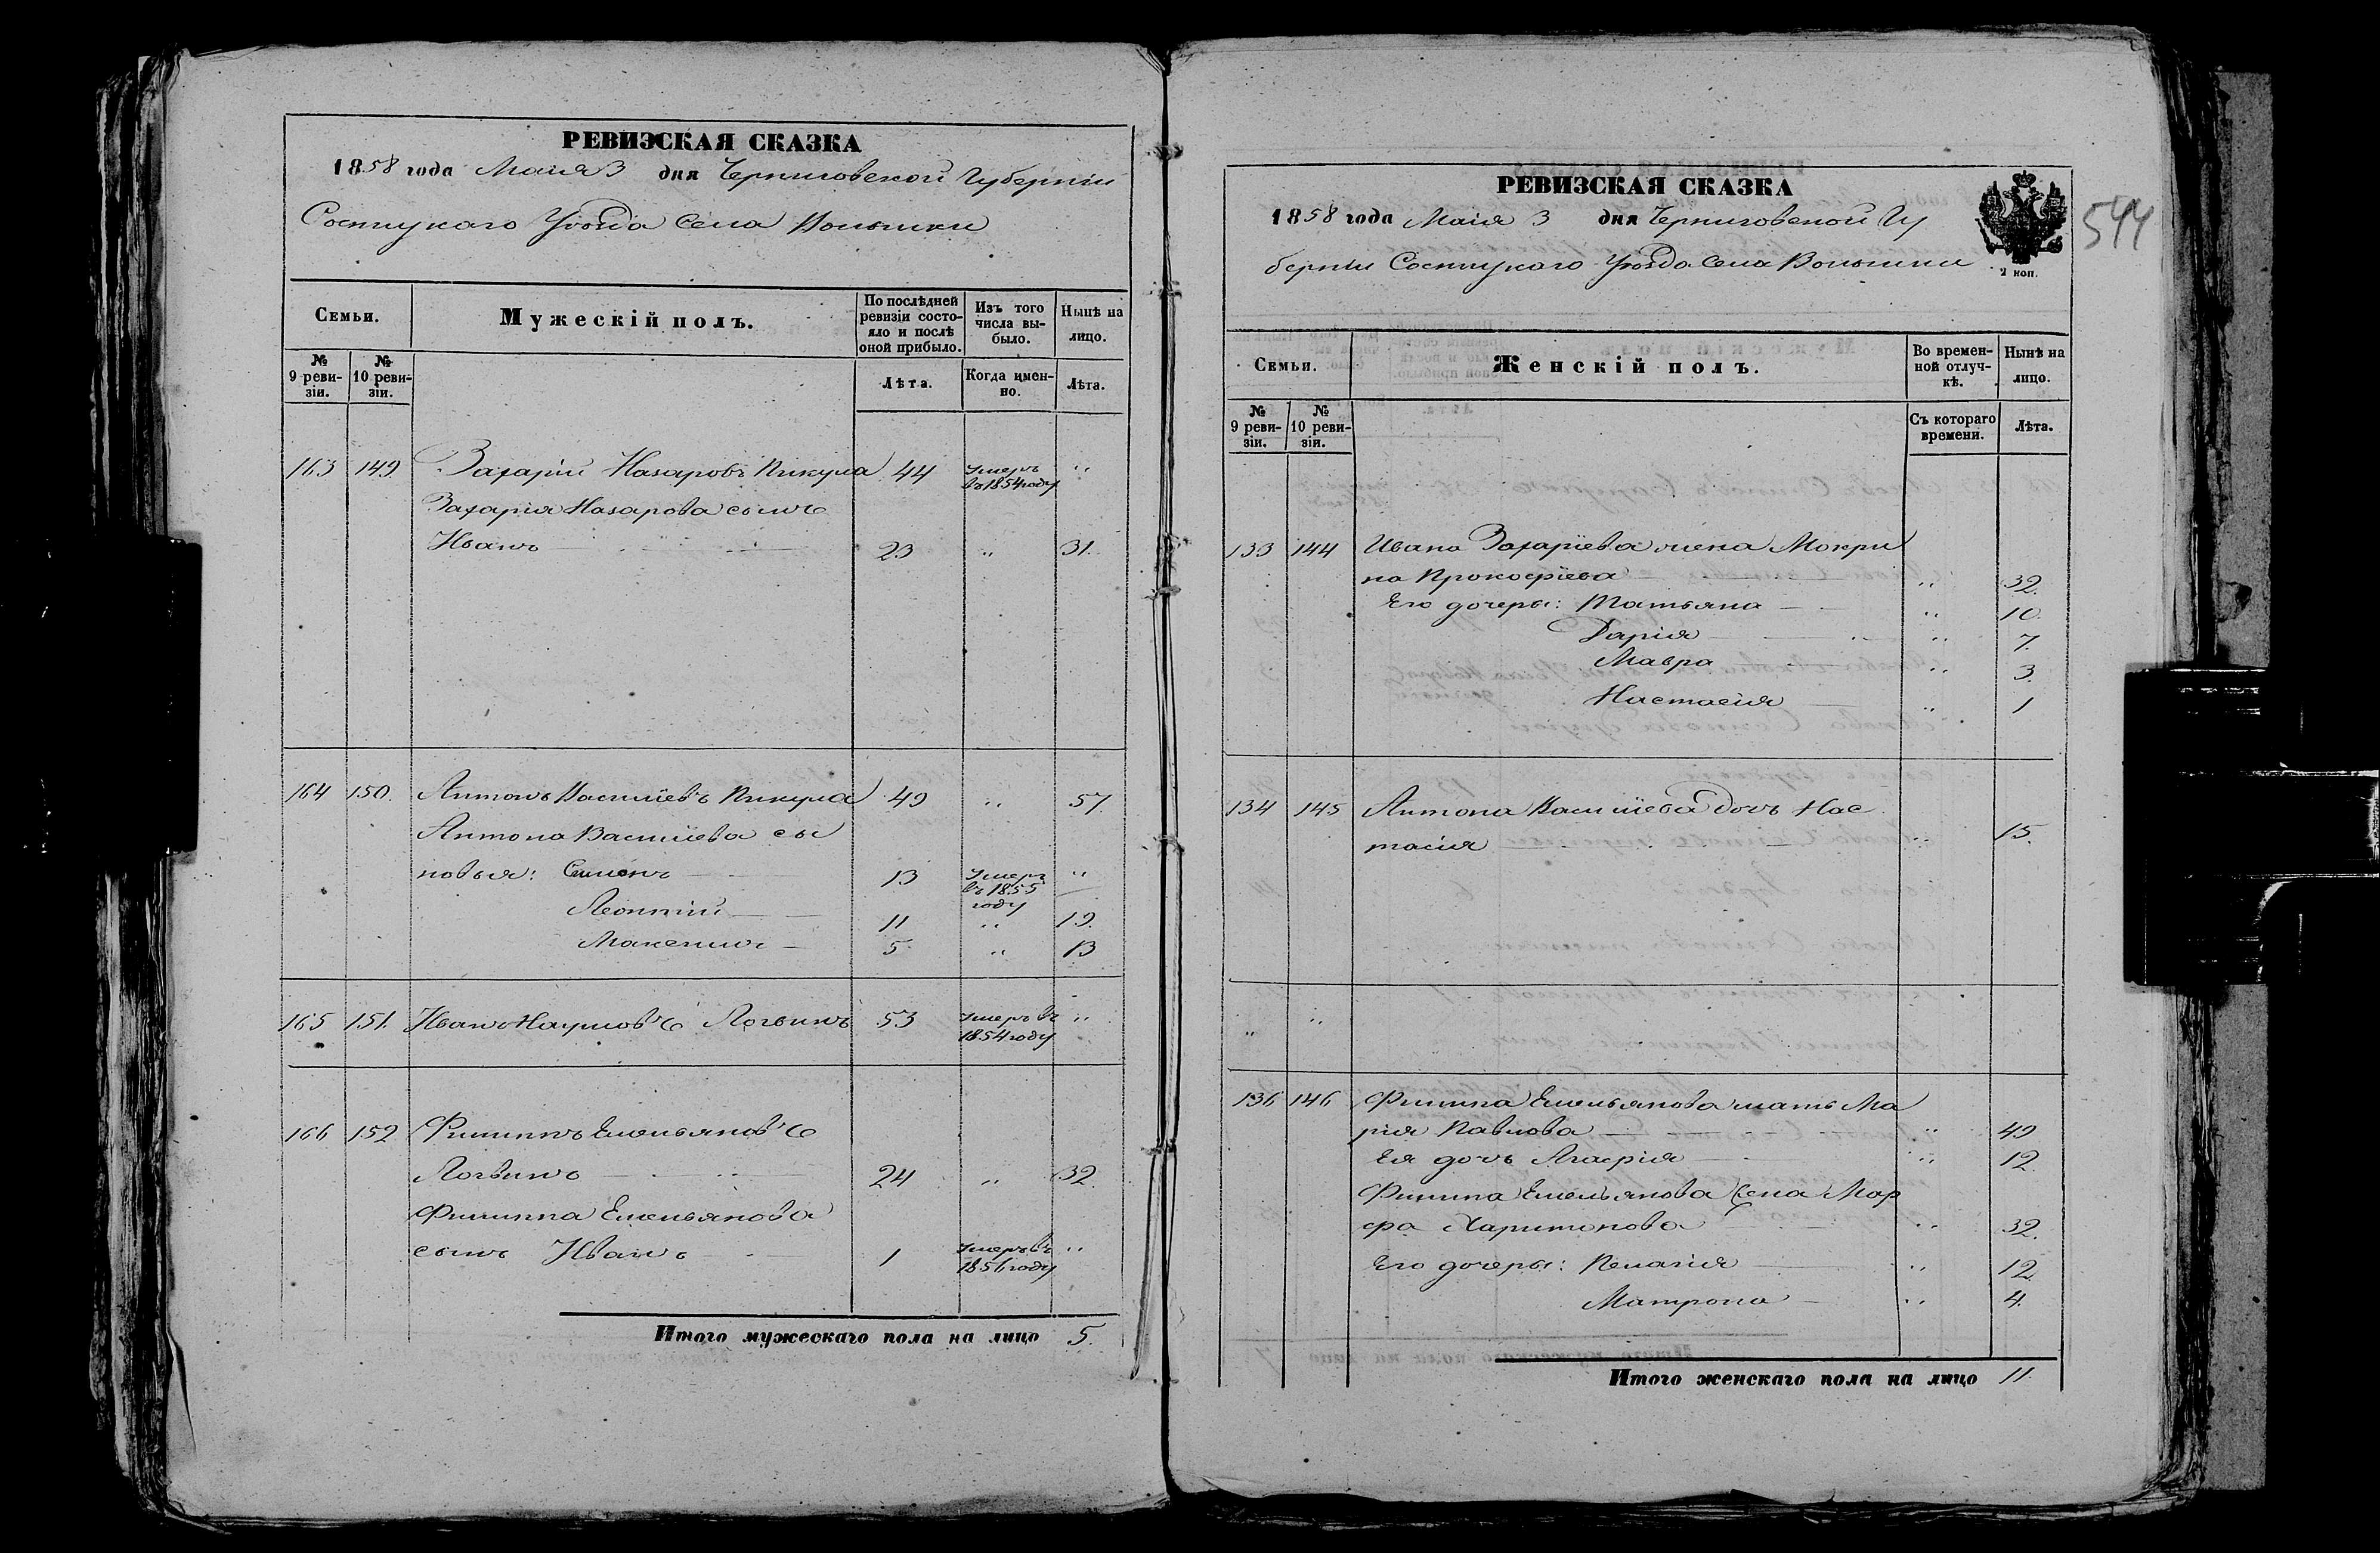 РЕВИЗСКАЯ СКАЗКА
1858 года Маія 3 дня Черниговской Губерніи
Сосницкаго Уѣзда Села Волынки
Семьи.
Мужескій полъ.
По послѣдней ревизіи состояло и послѣ оной прибыло.
Изъ того числа выбыло.
Нынѣ на лицо.
№ 9 ревизіи.
№ 10 ревизіи.
Лѣта.
Когда именно.
Лѣта.
163 149 Захарій Назаровъ Пикула 44 Умеръ въ 1854 году "
Захарія Назарова сынъ
Иванъ 23 " 31.
164 150. Антонъ Василіевъ Пикула 49 " 57.
Антона Василіева сы
новья: Семенъ 13 Умеръ въ 1855 году "
Леонтій 11 " 19.
Максимъ 5 " 13
165 151. Иванъ Наумовъ Логвинъ 53 Умеръ въ 1854 году "
166 152 Филиппъ Емельяновъ
Логвинъ 24 " 32.
Филиппа Емельянова
сынъ Иванъ 1 Умеръ въ 1856 году "
Итого мужескаго пола на лицо 5.
РЕВИЗСКАЯ СКАЗКА
1858 года Маія 3 дня Черниговской Гу
берніи Сосницкаго Уѣзда Села Волынки
2 коп.
544
Семьи.
Женскій полъ.
Во временной отлучкѣ.
Нынѣ на лицо.
№ 9 ревизіи.
№ 10 ревизіи.
Съ котораго времени.
Лѣта.
133 144 Ивана Захаріева жена Мокри
на Прокофіева " 32.
Его дочеры: Татьяна " 10.
Дарія " 7.
Мавра " 3.
Настасія " 1
134 145 Антона Василіева дочь Нас
тасія " 15.
" "
136 146 Филипа Емельянова мать Ма
рія Павлова " 49
Ея дочь Агафія " 12
Филипа Емельянова жена Мар
фа Харитонова " 32.
Его дочеры: Пелагія " 12.
Матрона " 4.
Итого женскаго пола на лицо 11.